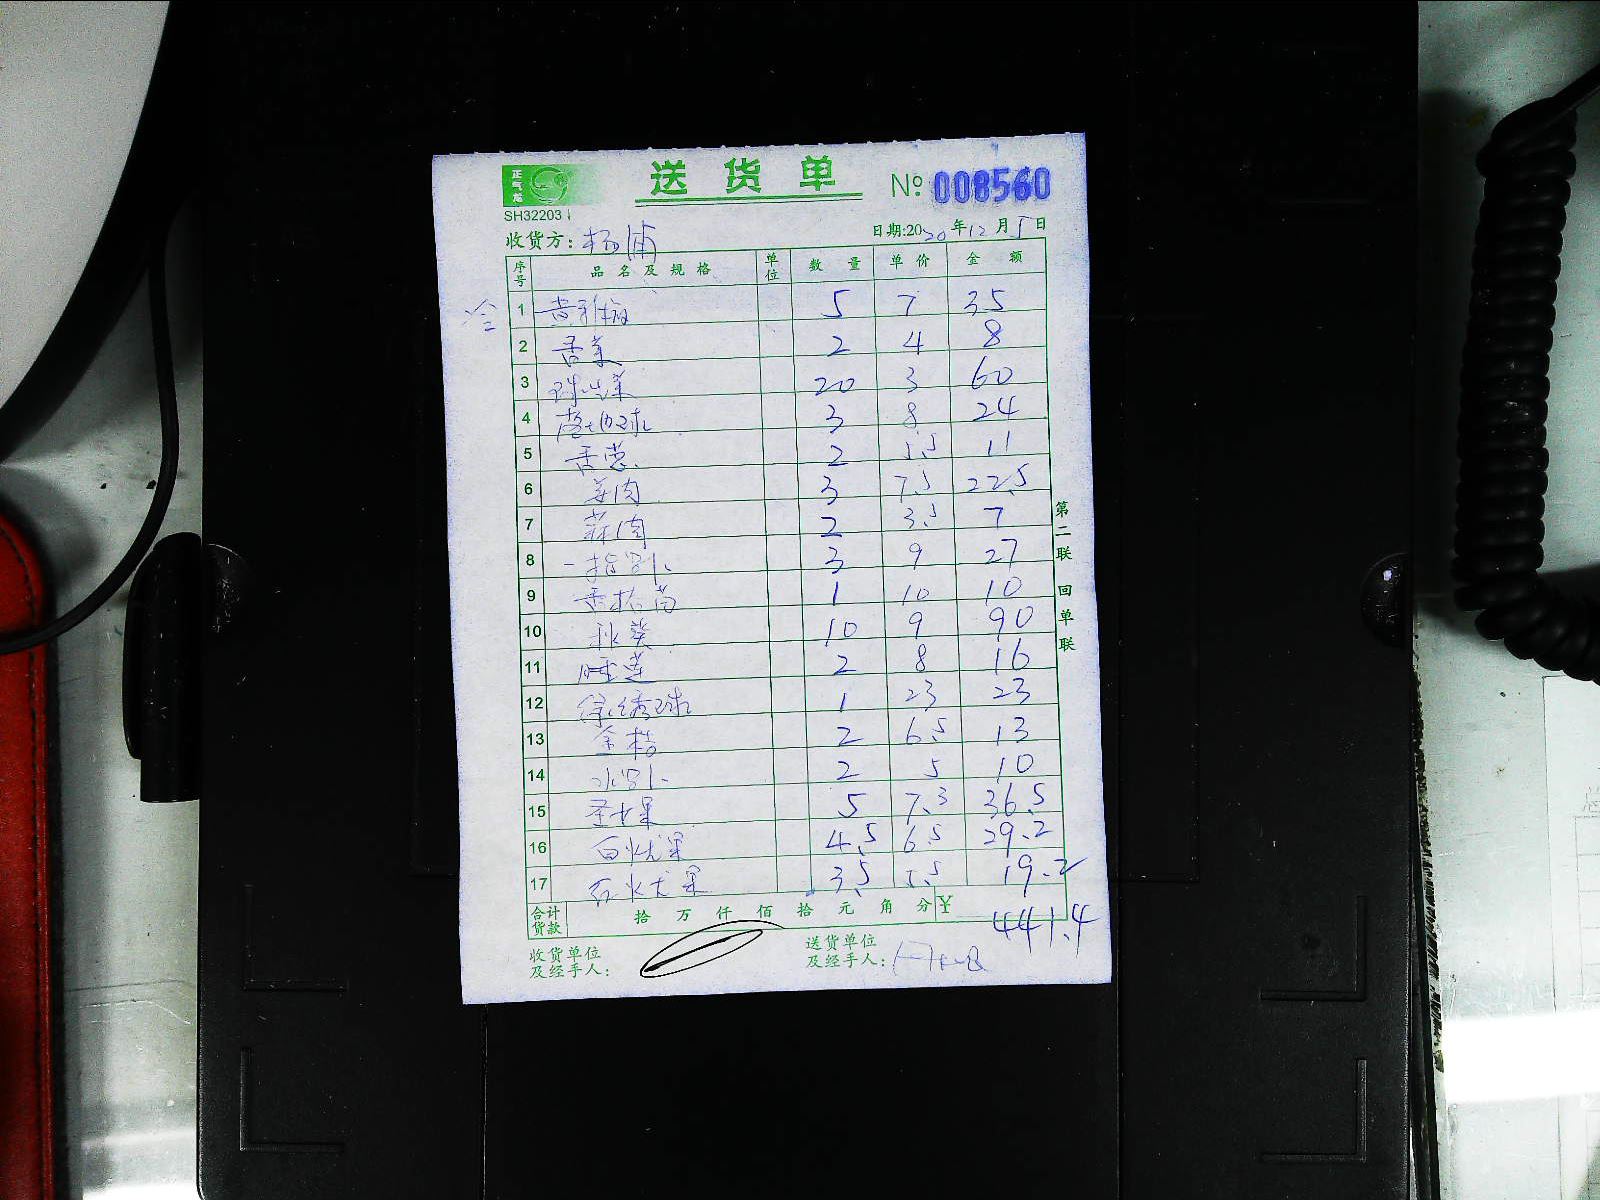 正气龙
送货单
№ 008560
SH32203
收货方：杨浦 日期:2020年12月5日
序号 品名及规格 单位 数量 单价 金额
冷
1 5 7 35
2 香菜 2 4 8
3 球生菜 20 3 60
4 3 8 24
5 香葱 2 5.5 11
6 姜肉 3 7.5 22.5
7 蒜肉 2 3.5 7
8 3 9 27
9 1 10 10
10 秋葵 10 9 90
11 睡莲 2 8 16
12 绿绣球 1 23 23
13 金桔 2 6.5 13
14 2 5 10
15 圣女果 5 7.3 36.5
16 白火龙果 4.5 6.5 29.2
17 红火龙果 3.5 5.5 19.2
合计货款 拾万仟佰拾元角分 ¥ 441.4
收货单位及经手人：
送货单位及经手人：
第二联 回单联